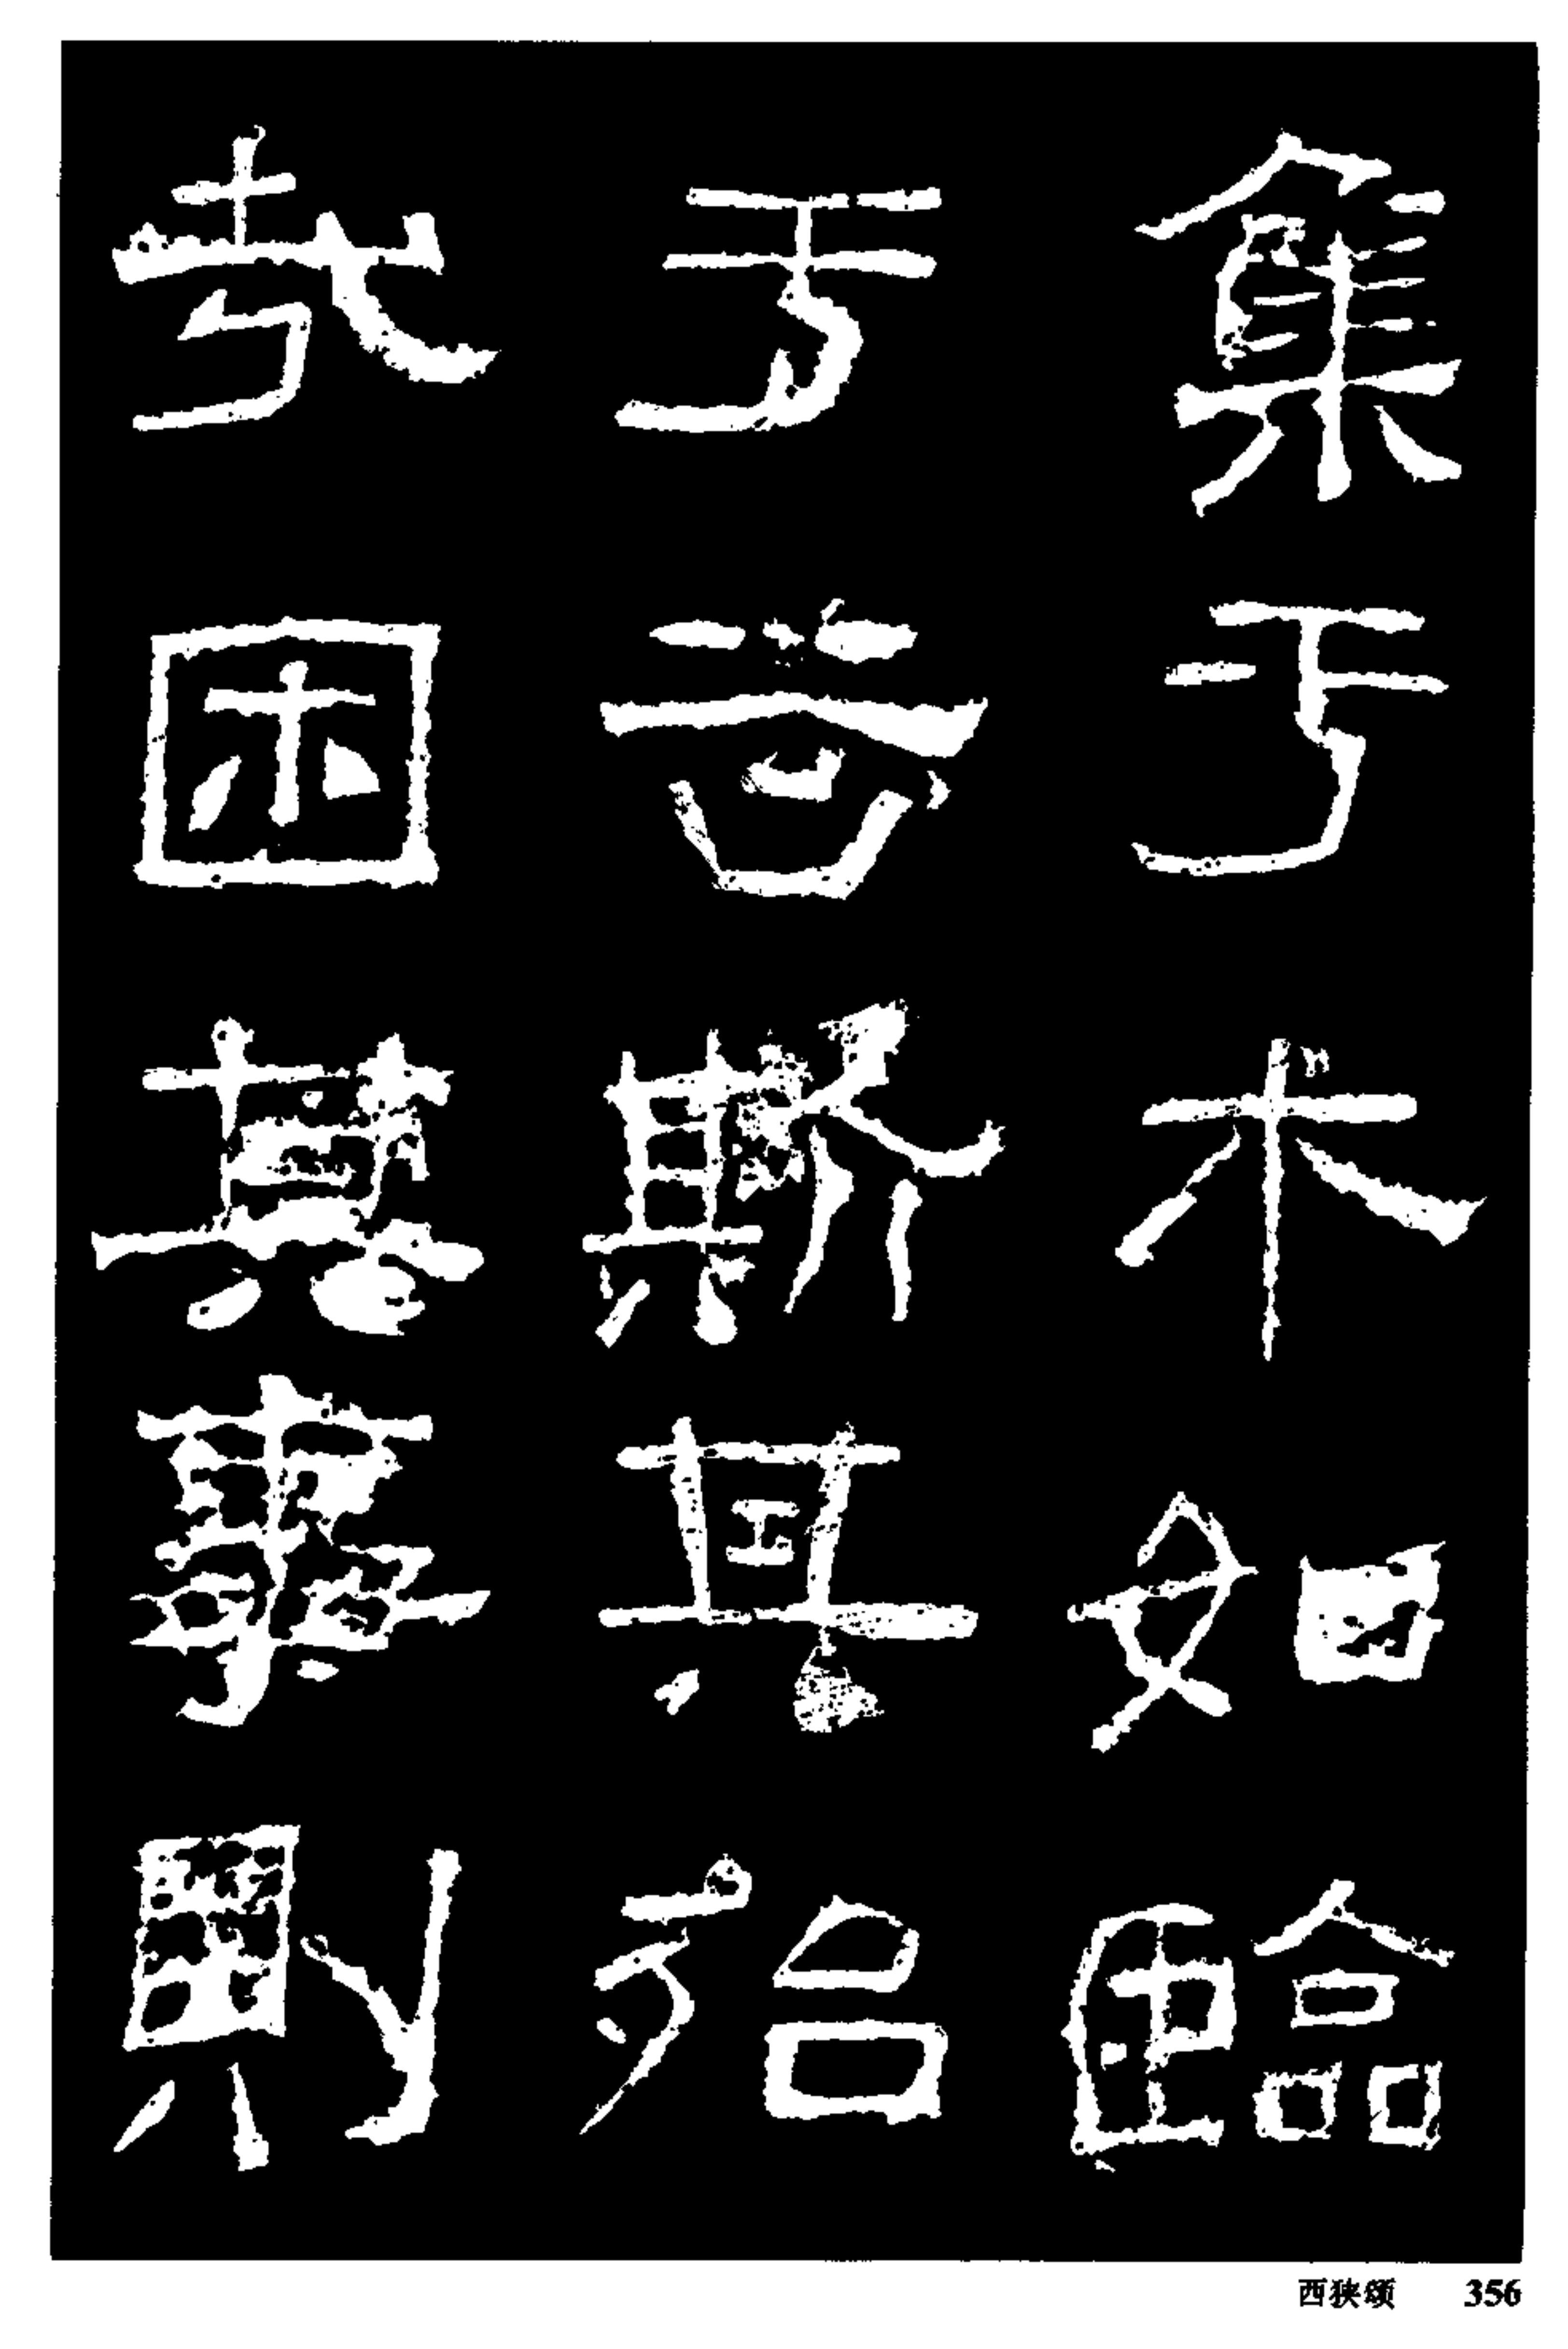 集于木如臨
于谷斯其殆
哉困其事則
西狭颂 356